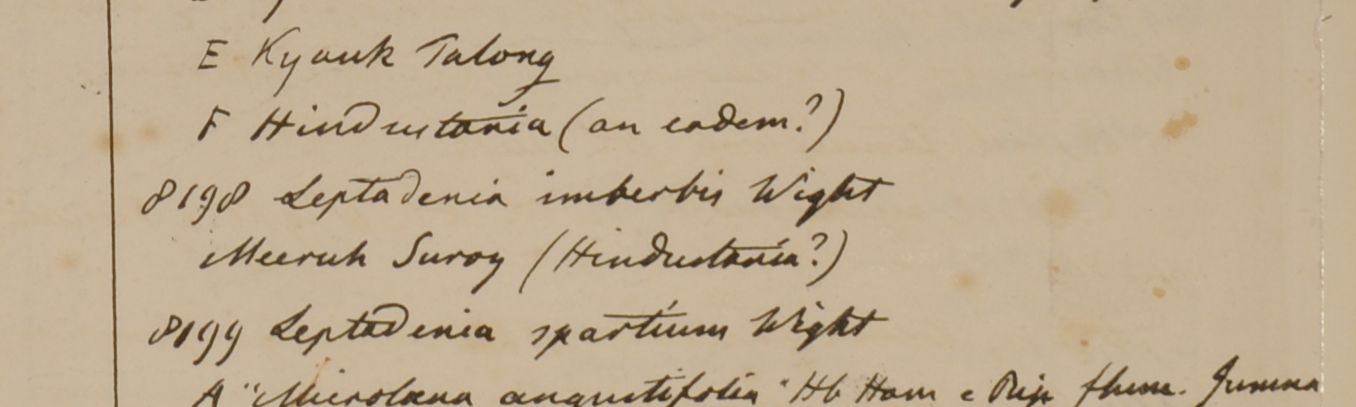 E Kyouk Talong
F Hindustania (an eadem?)
8198 Leptadenia imberbis Wight
Meeruh Suroy (Hindustania?)
8199 Leptadenia spartium Wight
A "Microlæna angustifolia" Hb Ham e Rip flum. Jumna